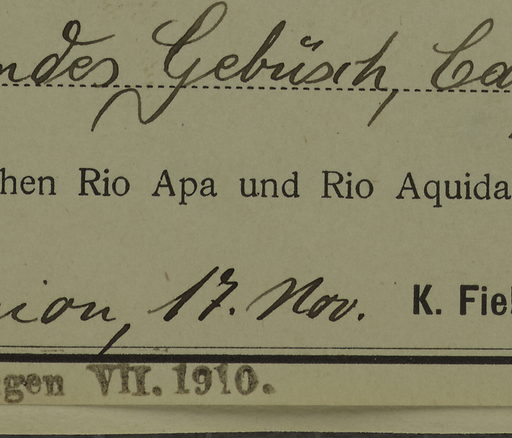 ndes Gebüsch, Ca
hen Rio Apa und Rio Aquida
nion, 17. Nov. K. Fie
gen VII. 1910.